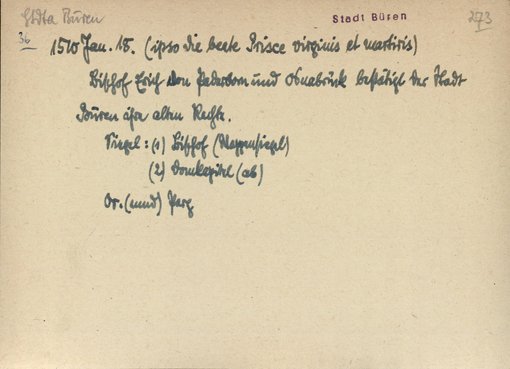 Stdta Büren
Stadt Büren
273
36
1510 Jan. 18. (ipso die beate Prisce virginis et martiris)
Bischof Erich von Paderborn und Osnabrück bestätigt der Stadt
Büren ihre alten Rechte.
Siegel: (1) Bischof (Wappensiegel)
(2) Domkapitel (ab)
Or. (mund) Perg